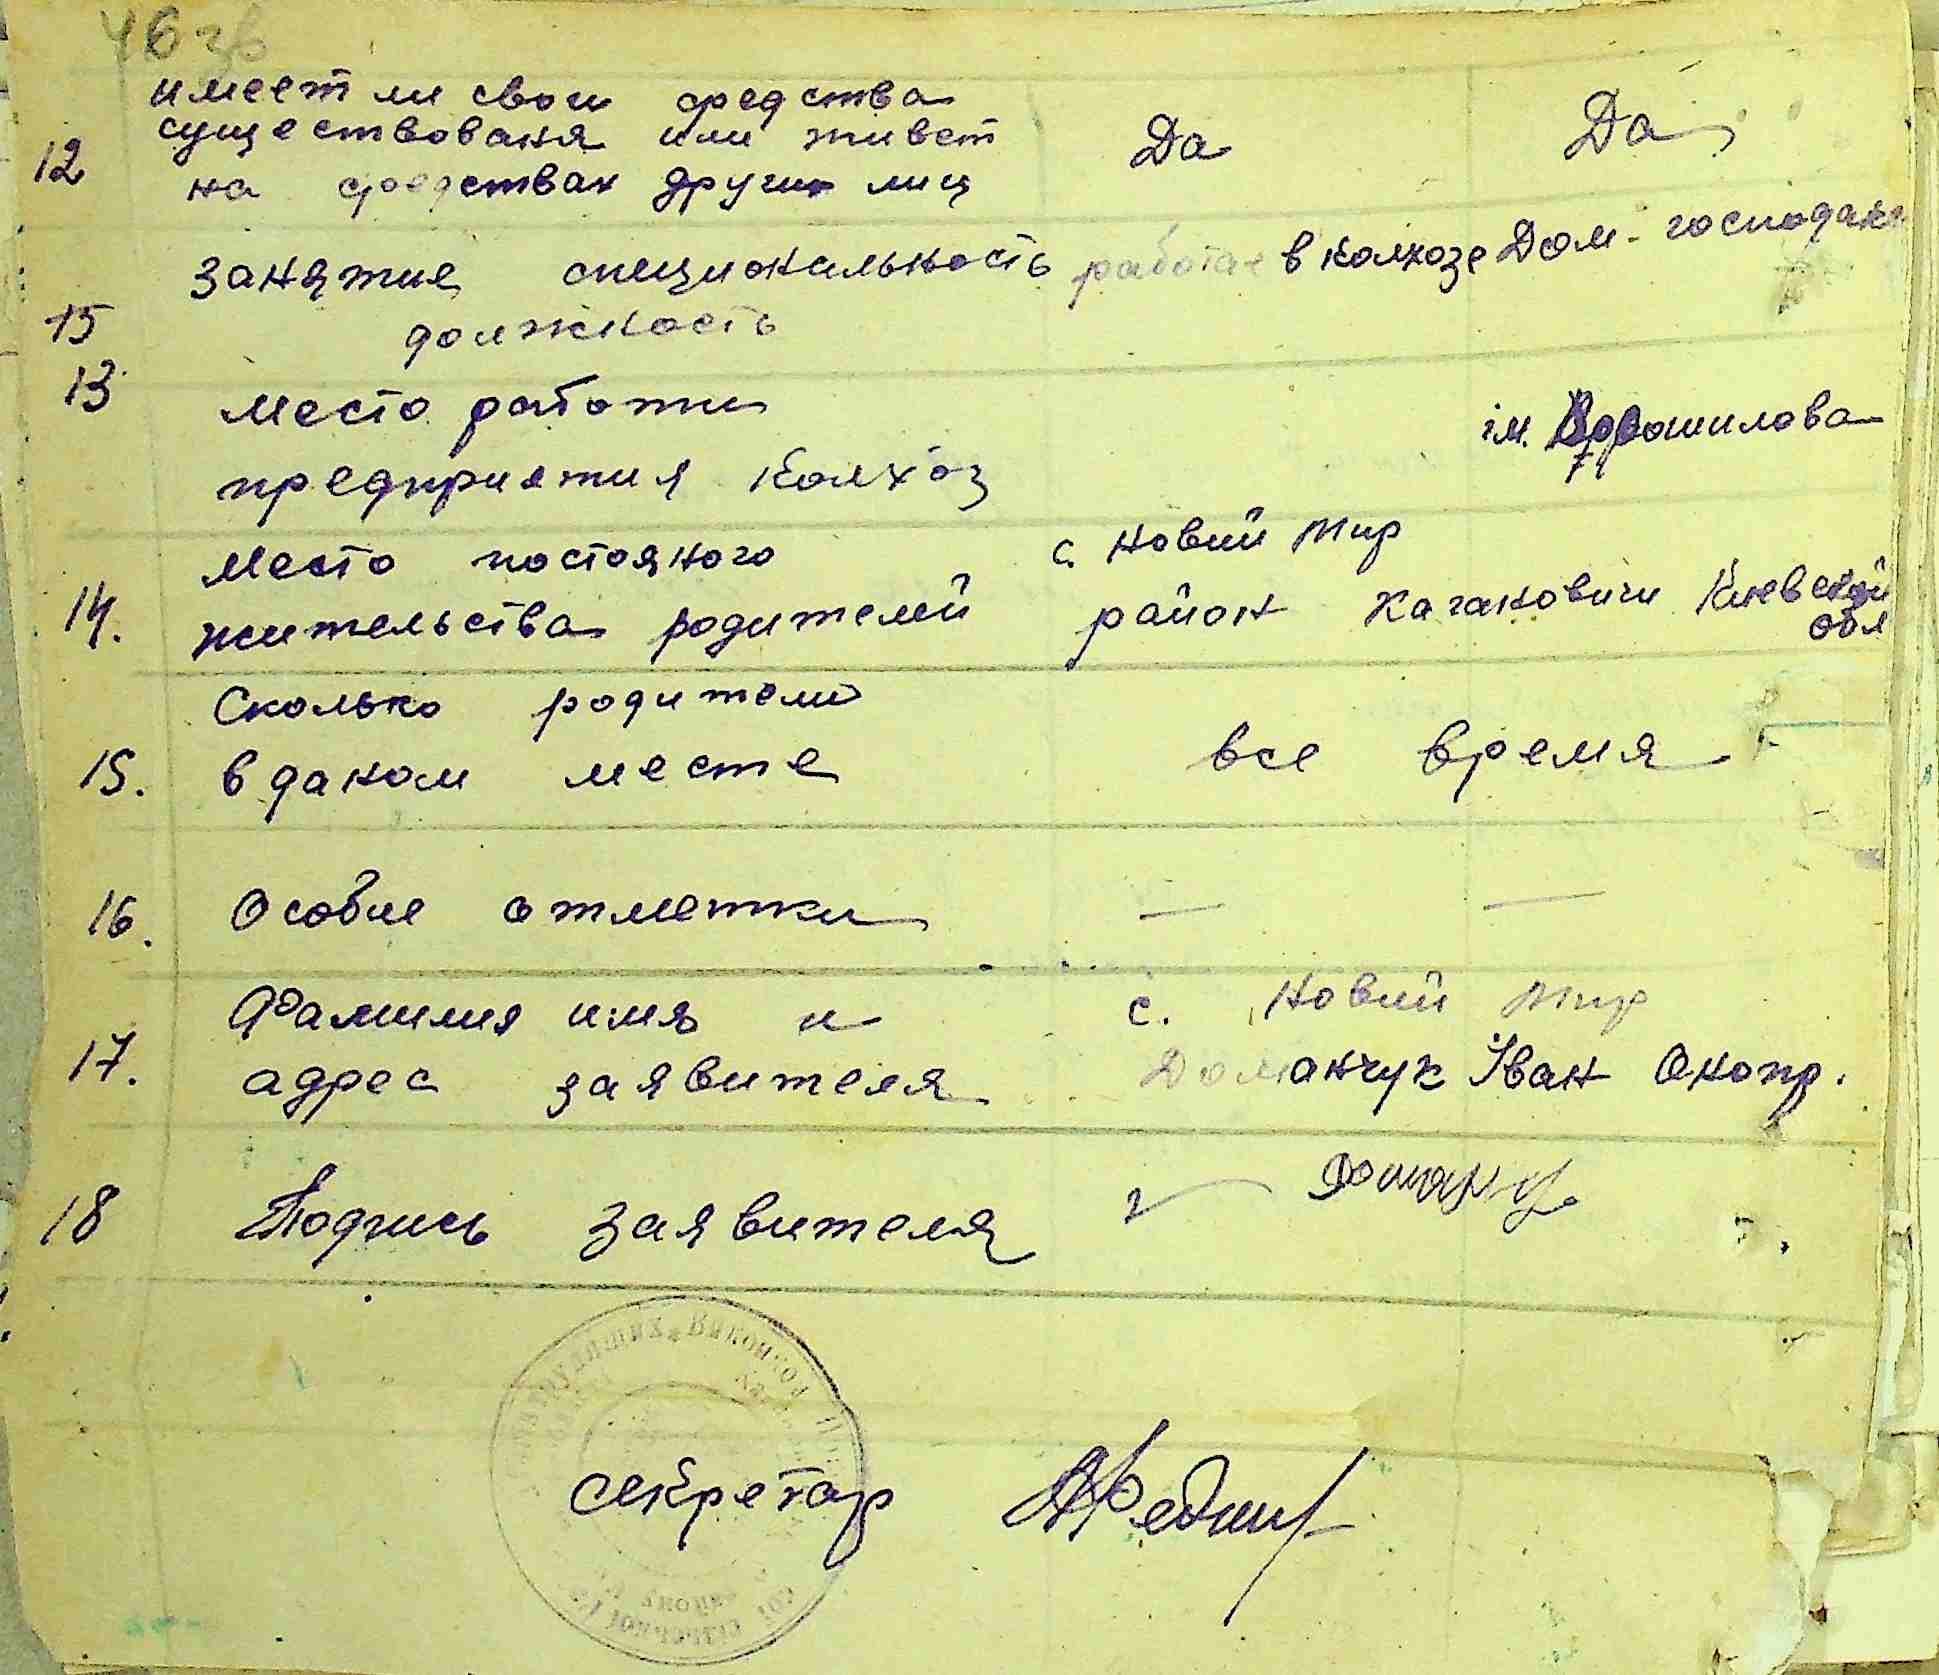 46 зв
имеет ли свои средства
существованя или живет
12 на средствах других лиц Да Да
занятие специональность работае в колхозе Дом-господарка
15 должность
13 Место работи ім. Ворошилова
предприятия Колхоз
Место постояного с. Новий Мир
14. жительства родителей район Каганович Киевской обл
Сколько родители
15. в даном месте все время
16. Особие отметки — —
Фамилия имя и с. Новий Мир
17. адрес заявителя Доманчук Іван Онопр.
18 Подпись заявителя
секретар